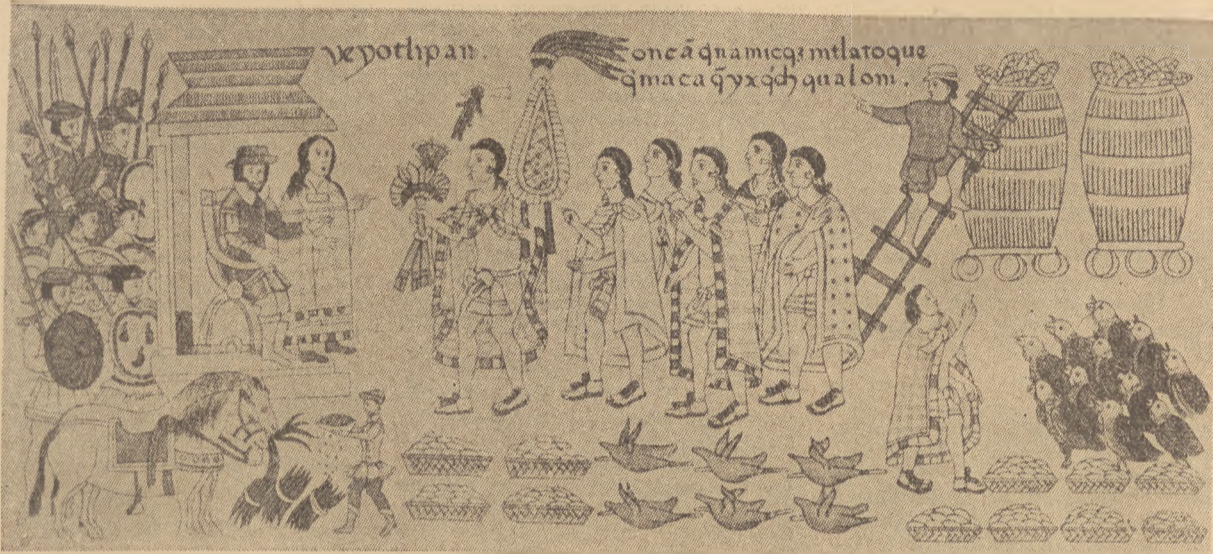 veyotlipan.
oncã q̃namicq3 intlatoque
q̃macaq̃ yxq̃ch qualoni.